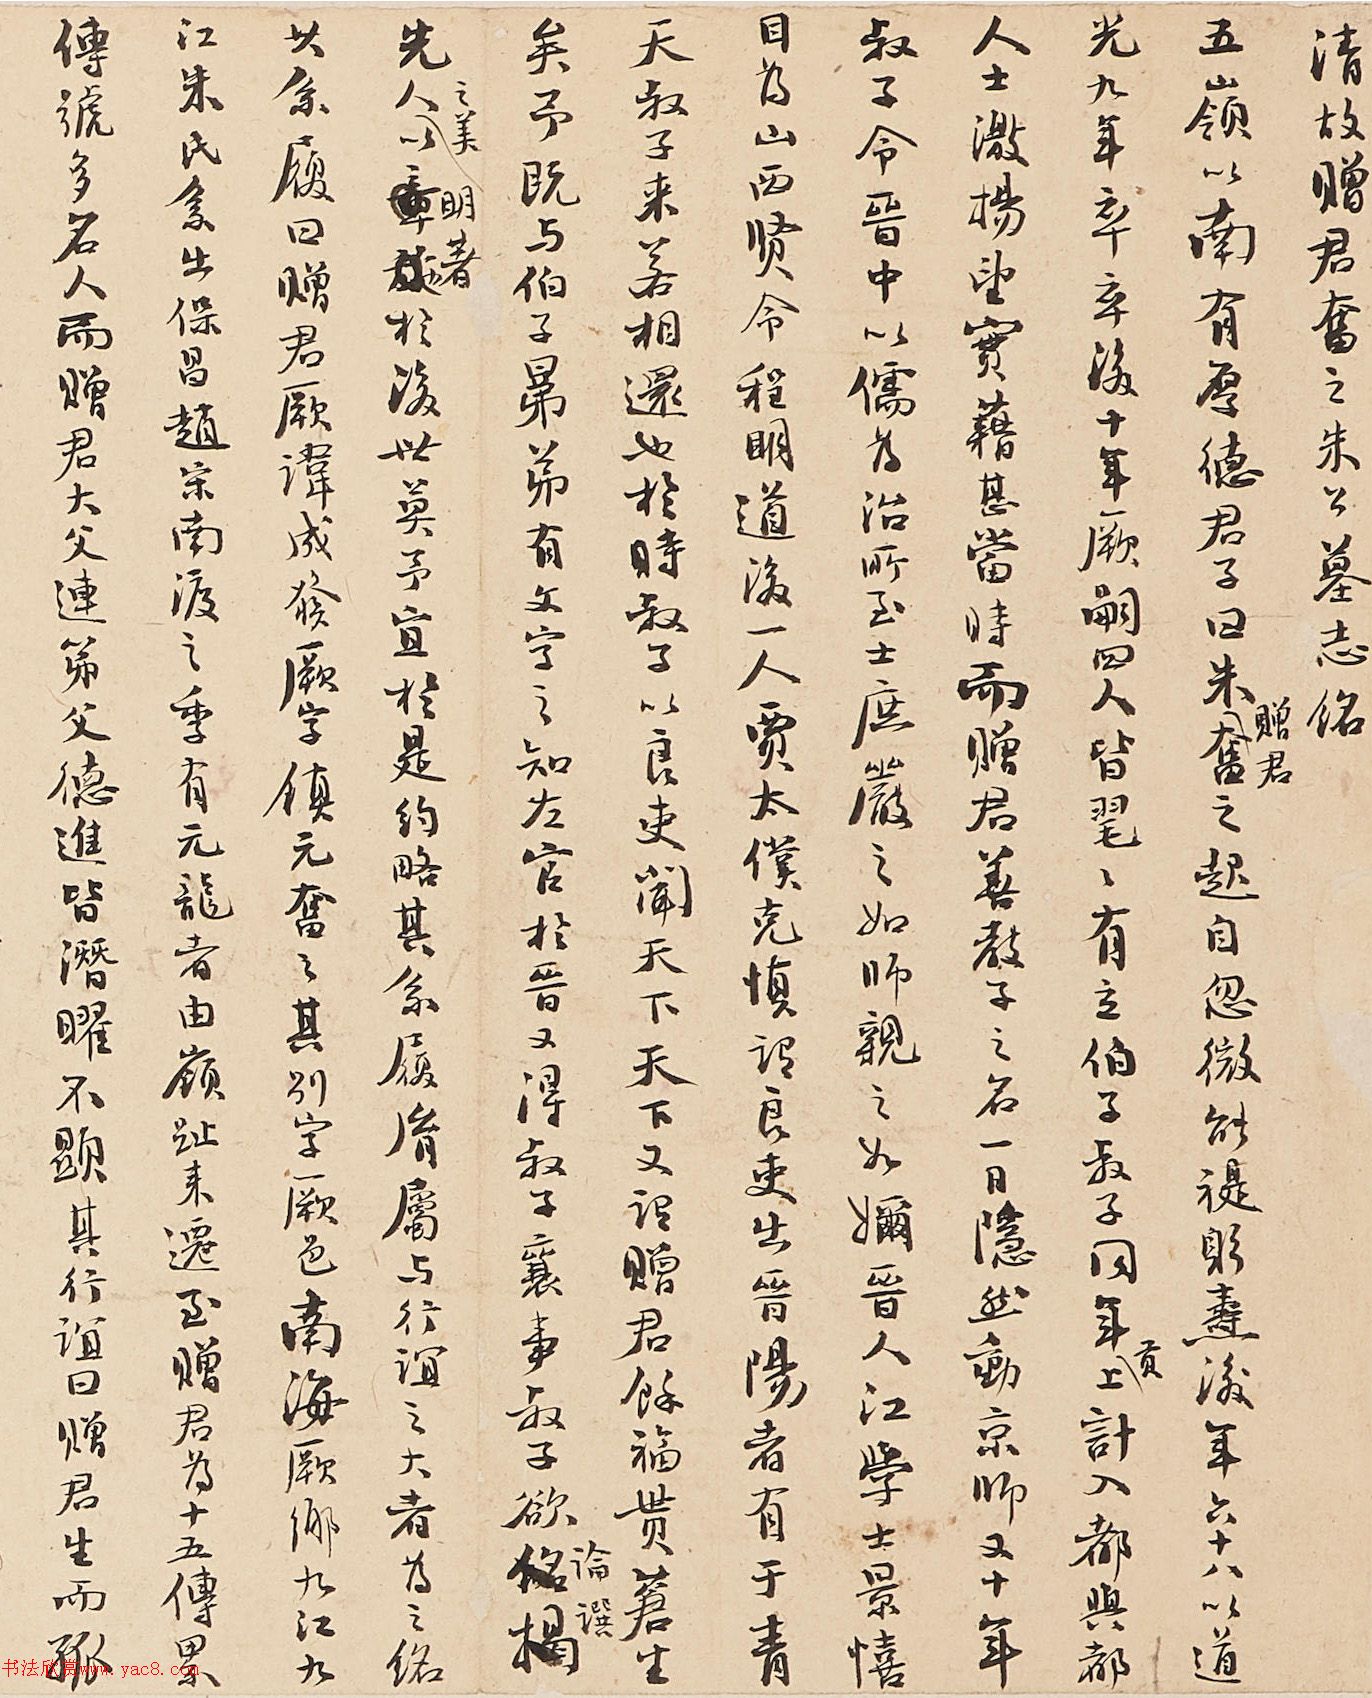 清故赠君奮之朱公墓志铭
五嶺以南有厚德君子曰朱赠君奮之起自忽微能禔躬燾後年六十八以道
光九年卒卒後十年厥嗣四人皆毣〻有立伯子叔子同年贡上計入都與都
人士激揚望實藉甚當時而赠君善教子之名一日隱然動京師又十年
叔子令晉中以儒为治所至士庶嚴之如师親之如嬭晉人江學士景憘
目为山西贤令程明道後一人贾太僕克慎謂良吏出晉陽者有于青
天叔子来若相還也於時叔子以良吏聞天下天下又謂赠君餘福贯蒼生
矣予既与伯子晜弟有文字之知左官於晉又得叔子襄事叔子欲論譔
先人之美以明著於後世莫予宜於是约略其系履胤屬与行谊之大者为之铭
其系履曰赠君厥諱成發厥字镇元奮之其别字厥邑南海厥鄉九江九
江朱氏系出保昌趙宋南渡之季有元龍者由嶺趾来遷至赠君为十五傳累
傳號多名人而赠君大父連第父德進皆潛曜不顯其行谊曰赠君生而
书法欣赏www.yac8.com